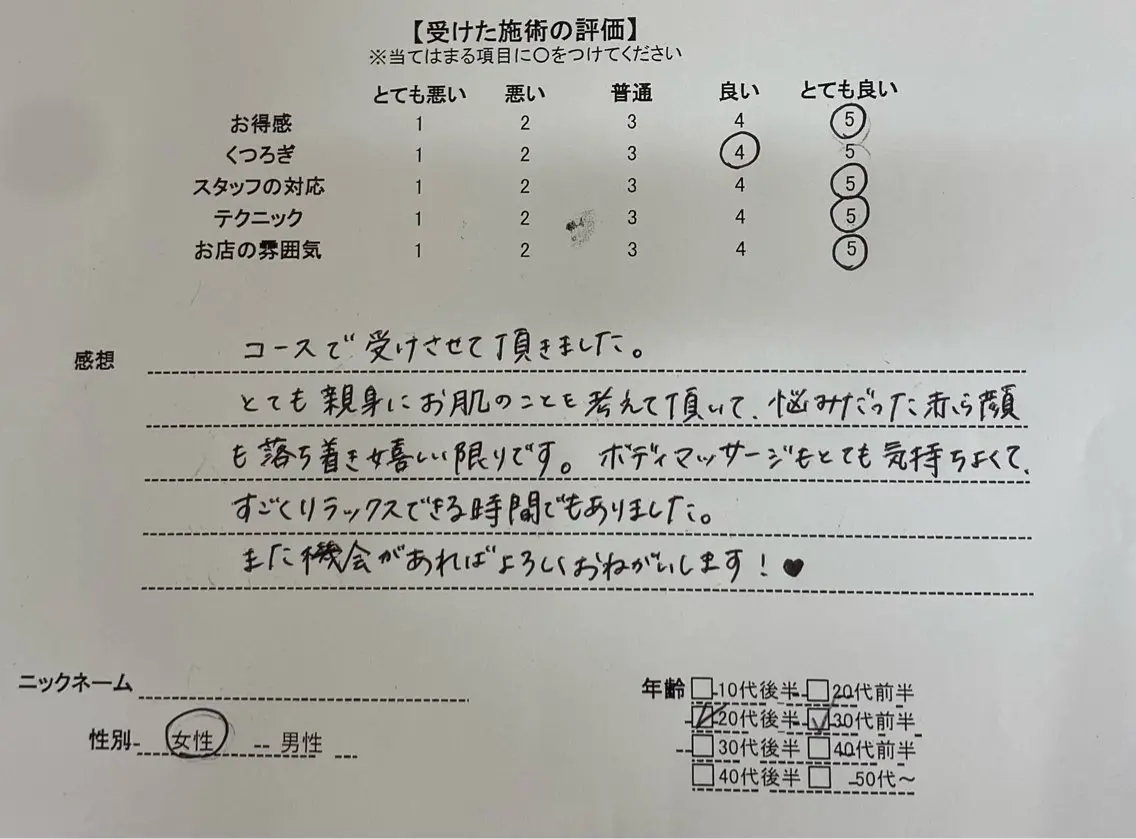 【受けた施術の評価】
※当てはまる項目に○をつけてください
とても悪い 悪い 普通 良い とても良い
お得感 1 2 3 4 5
くつろぎ 1 2 3 4 5
スタッフの対応 1 2 3 4 5
テクニック 1 2 3 4 5
お店の雰囲気 1 2 3 4 5
感想 コースで受けさせて頂きました。
とても親身にお肌のことを考えて頂いて、悩みだった赤ら顔
も落ち着き嬉しい限りです。ボディマッサージもとても気持ちよくて、
すごくリラックスできる時間でもありました。
また機会があればよろしくおねがいします!♥
ニックネーム
性別 女性 男性
年齢 10代後半 20代前半
20代後半 30代前半
30代後半 40代前半
40代後半 50代～